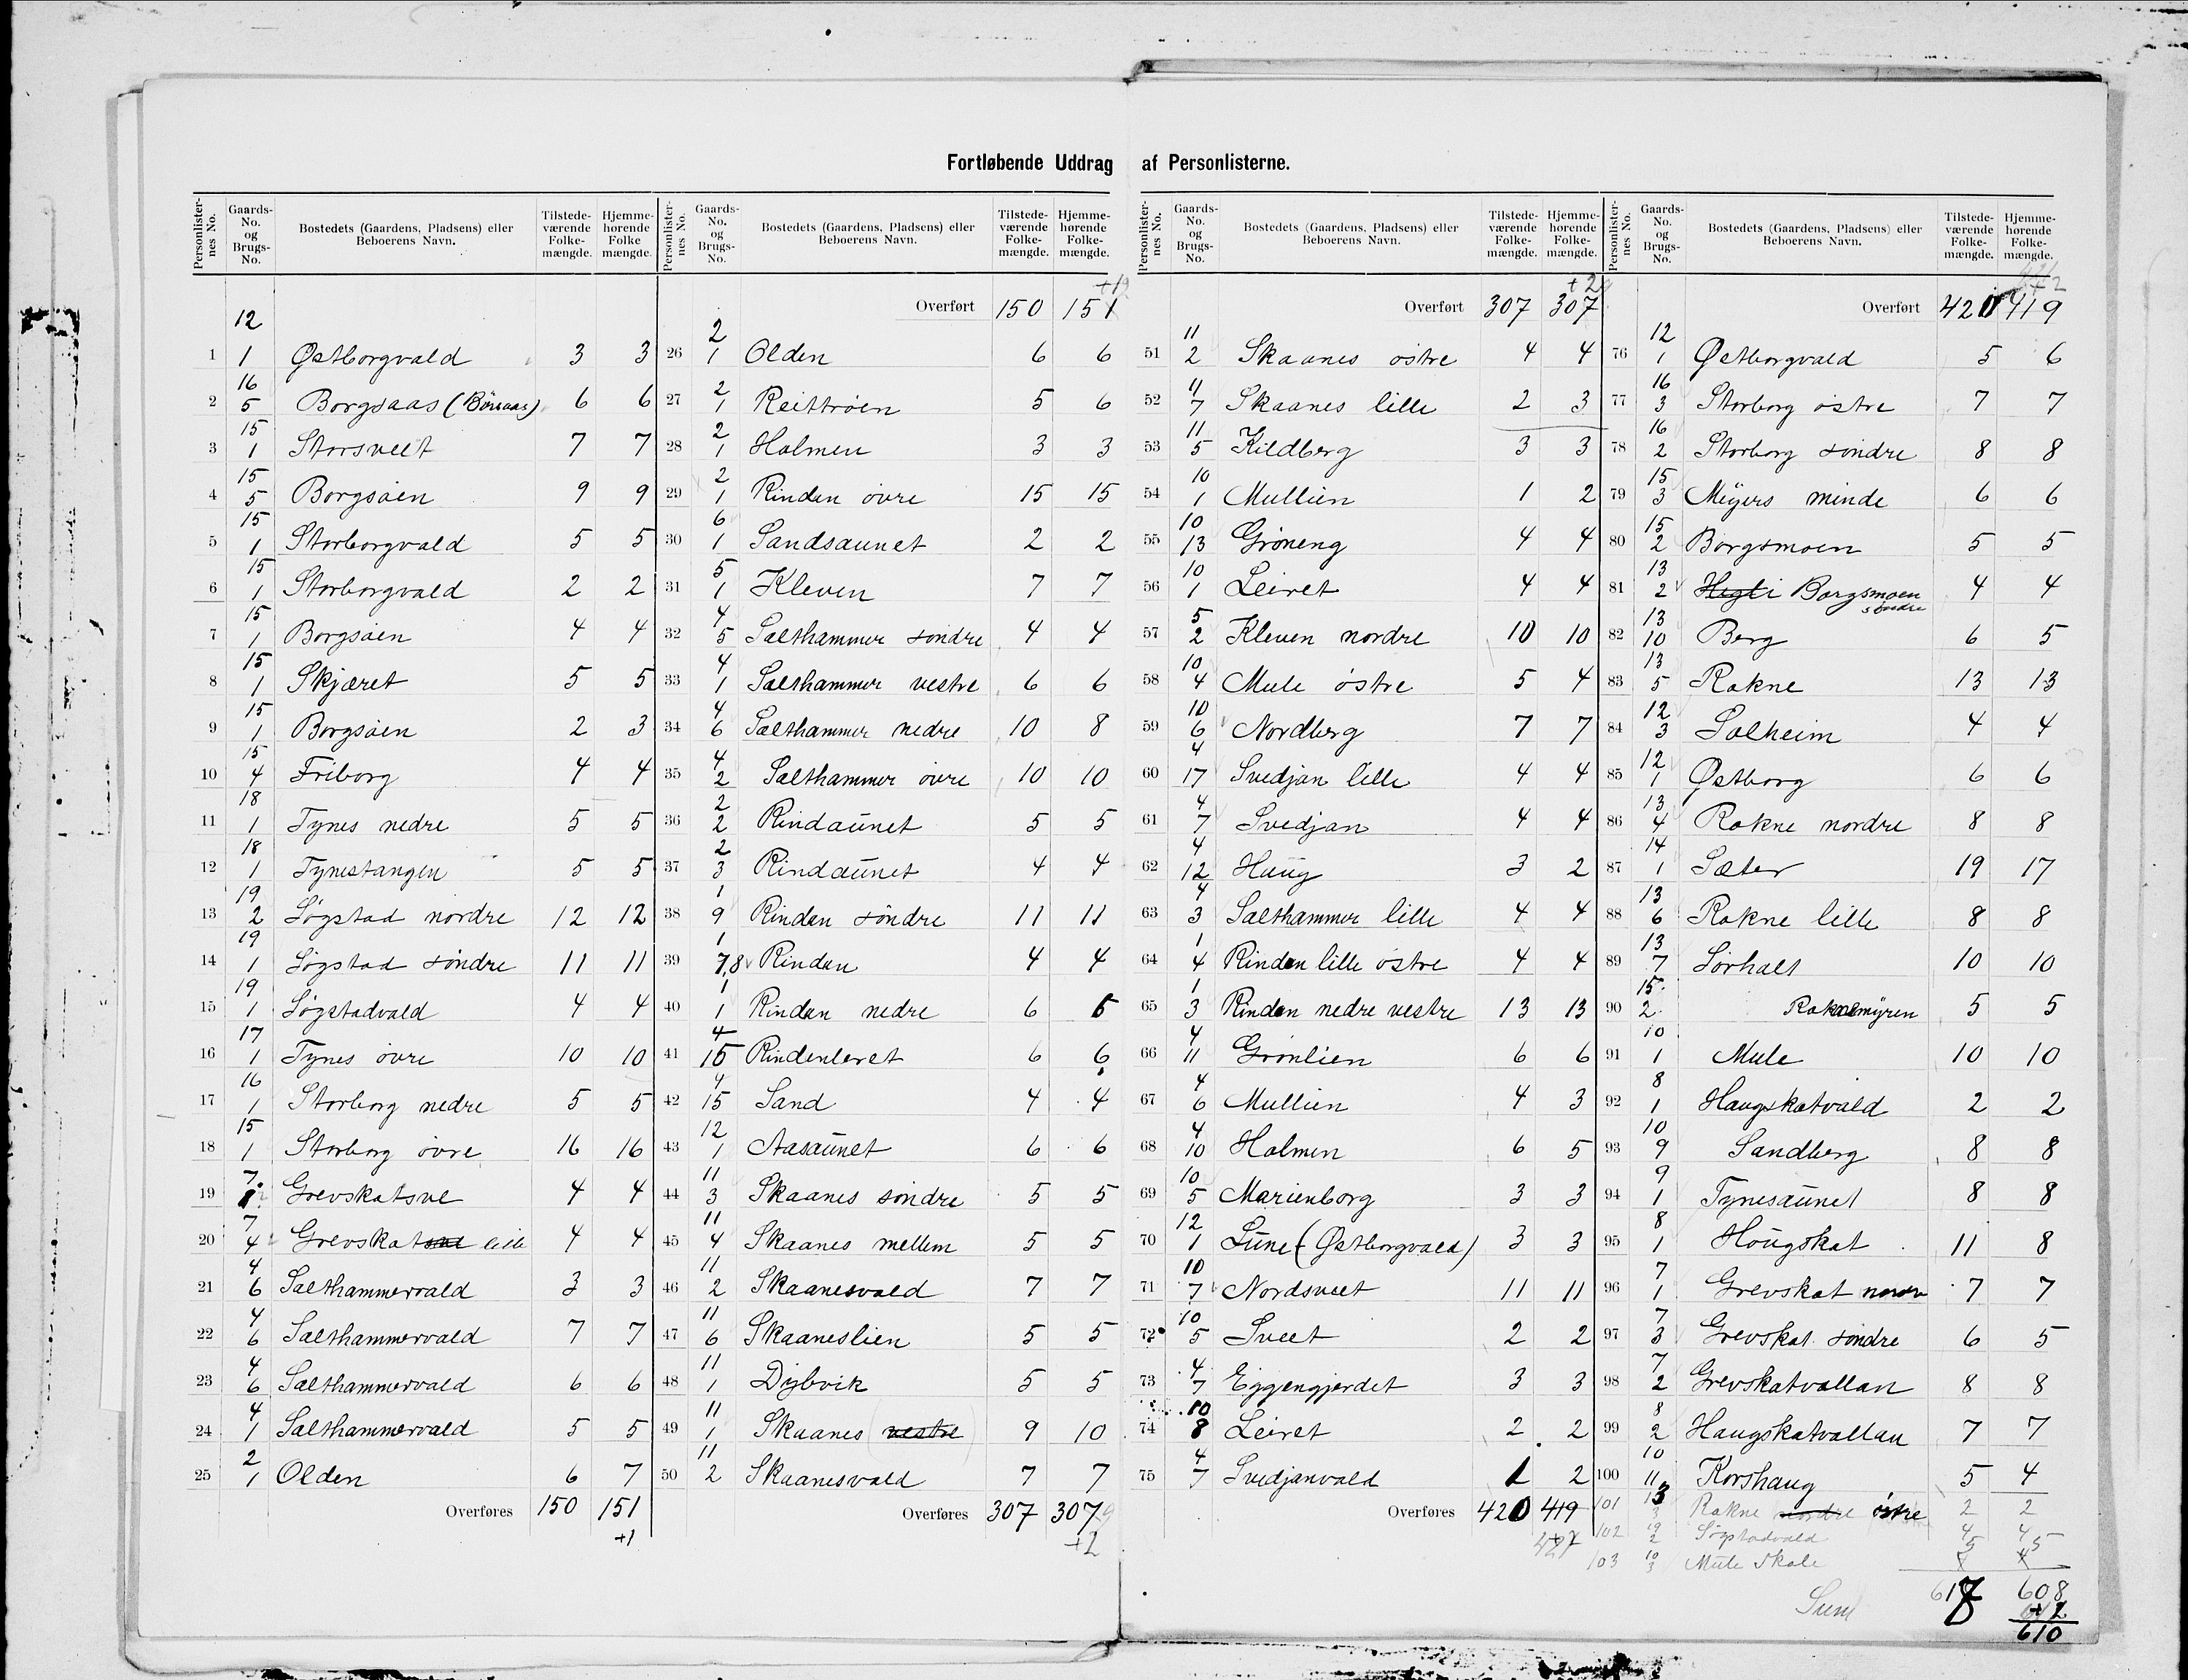 Fortløbende Uddrag af Personlisterne.
Personlister-nes No. Gaards-No. og Brugs-No. Bostedets (Gaardens, Pladsens) eller Beboerens Navn. Tilstede-værende Folke-mængde. Hjemme-hørende Folke mængde.
12
1 1 Østborgvald 3 3
2 16 5 Borgsaas (Börsaas) 6 6
3 15 1 Storsveet 7 7
4 15 5 Borgsöen 9 9
5 15 1 Storborgvald 5 5
6 15 1 Storborgvald 2 2
7 15 1 Borgsöen 4 4
8 15 1 Skjæret 5 5
9 15 1 Borgsöen 2 3
10 15 4 Friborg 4 4
11 18 1 Tynes nedre 5 5
12 18 1 Tynestangen 5 5
13 19 2 Søgstad nordre 12 12
14 19 1 Søgstad söndre 11 11
15 19 1 Søgstadvald 4 4
16 17 1 Tynes övre 10 10
17 16 1 Storborg nedre 5 5
18 15 1 Storborg övre 16 16
19 7 1 Grevskatsve 4 4
20 7 4 Grevskat lille 4 4
21 4 6 Salthammervald 3 3
22 4 6 Salthammervald 7 7
23 4 6 Salthammervald 6 6
24 4 1 Salthammervald 5 5
25 2 1 Olden 6 7
Overføres 150 151
+1
Personlister-nes No. Gaards-No. og Brugs-No. Bostedets (Gaardens, Pladsens) eller Beboerens Navn. Tilstede-værende Folke-mængde. Hjemme-hørende Folke-mængde.
Overført 150 151
26 2 1 Olden 6 6
27 2 1 Reittröen 5 6
28 2 1 Holmen 3 3
29 2 1 Rindan övre 15 15
30 6 1 Sandsaunet 2 2
31 5 1 Kleven 7 7
32 4 5 Salthammer söndre 4 4
33 4 1 Salthammer vestre 6 6
34 4 6 Salthammer nedre 10 8
35 4 2 Salthammer övre 10 10
36 2 2 Rindaunet 5 5
37 2 3 Rindaunet 4 4
38 1 9 Rindan söndre 11 11
39 1 7,8 Rindan 4 4
40 1 1 Rindan nedre 6 5
41 4 15 Rindenleret 6 6
42 4 15 Sand 4 4
43 12 1 Aasaunet 6 6
44 11 3 Skaanes söndre 5 5
45 11 4 Skaanes mellem 5 5
46 11 2 Skaanesvald 7 7
47 11 6 Skaaneslien 5 5
48 11 1 Dybvik 5 5
49 11 1 Skaanes (vestre) 9 10
50 11 2 Skaanesvald 7 7
Overføres 307 307
+2
Personlister-nes No. Gaards-No. og Brugs-No. Bostedets (Gaardens, Pladsens) eller Beboerens Navn. Tilstede-værende Folke-mængde. Hjemme-hørende Folke-mængde.
+2
Overført 307 307
51 11 2 Skaanes östre 4 4
52 11 7 Skaanes lille 2 3
53 11 5 Kildberg 3 3
54 10 1 Mullien 1 2
55 10 13 Gröneng 4 4
56 10 1 Leiret 4 4
57 5 2 Kleven nordre 10 10
58 10 4 Mule östre 5 4
59 10 6 Nordberg 7 7
60 4 17 Svedjan lille 4 4
61 4 7 Svedjan 4 4
62 4 12 Haug 3 2
63 4 3 Salthammer lille 4 4
64 1 4 Rindan lille östre 4 4
65 1 3 Rindan nedre vestre 13 13
66 4 11 Grönlien 6 6
67 4 6 Mullien 4 3
68 4 10 Holmen 6 5
69 10 5 Marienborg 3 3
70 12 1 Lune (Østborgvald) 3 3
71 10 7 Nordsveet 11 11
72 10 5 Sveet 2 2
73 4 7 Eggengjerdet 3 3
74 10 8 Leiret 2 2
75 4 7 Svedjanvald 1 2
Overføres 420 419
421
Personlister-nes No. Gaards-No. og Brugs-No. Bostedets (Gaardens, Pladsens) eller Beboerens Navn. Tilstede-værende Folke-mængde. Hjemme-hørende Folke-mængde.
Overført 420 419
76 12 1 Østborgvald 5 6
77 16 3 Storborg östre 7 7
78 16 2 Storborg söndre 8 8
79 15 3 Meyers minde 6 6
80 15 2 Borgsmoen 5 5
81 13 2 Borgsmoen söndre 4 4
82 13 10 Berg 6 5
83 13 5 Rokne 13 13
84 12 3 Solheim 4 4
85 12 1 Østborg 6 6
86 13 4 Rokne nordre 8 8
87 14 1 Sæter 19 17
88 13 6 Rokne lille 8 8
89 13 7 Sörhalt 10 10
90 15 2 Roknemyren 5 5
91 10 1 Mule 10 10
92 8 1 Haugskatvald 2 2
93 10 9 Sandberg 8 8
94 9 1 Tynesaunet 8 8
95 8 1 Hougskat 11 8
96 7 1 Grevskat nordre 7 7
97 7 3 Grevskat söndre 6 5
98 7 2 Grevskatvallan 8 8
99 8 2 Haugskatvallan 7 7
100 10 11 Korshaug 5 4
101 13 3 Rokne nordre östre 2 2
102 19 2 Søgstadvald 4 4
103 10 3 Mule Skole 5 5
Sum 617 608
+2
610